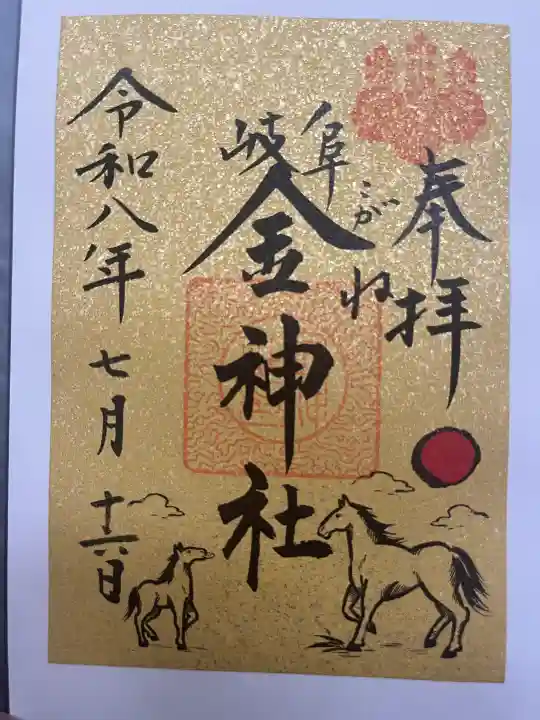 奉拝
岐阜
こがね
金神社
令和八年七月十六日